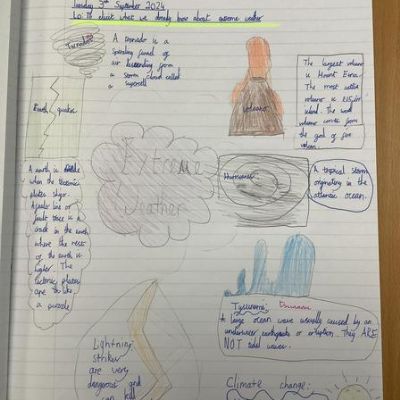 Tuesday 3rd September 2024
Lo: To elicit what we already know about extreme weather
Tornado
A tornado is a
spiraling funnel of
air descending from
a storm cloud called
a supercell
volcano
The largest volcano
is Mount Etna.
The most active
volcano is
island. The word
volcano comes from
the god of fire
vulcan.
Earth quakes
Extreme
Weather
Hurricanes
A tropical storm
originating in the
atlantic ocean.
A earth is
when the tectonic
plates slip.
A fault line or
fault trace is a
crack in the earth
where the rest
of the earth is
higher. The
tectonic plates
are like
a puzzle
Tsunami: Tsunami
A large ocean wave usually caused by an
underwater earthquake or eruption. They ARE
NOT tidal waves.
Lightning
strikes
are very
dangerous and
can kill
Climate change: